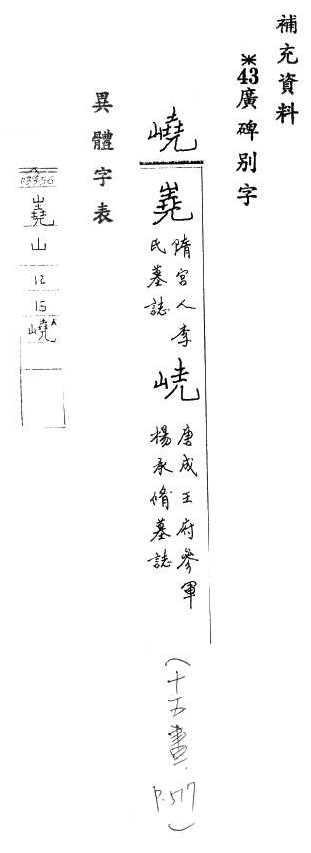 補充資料
※43廣碑別字
嶢
嶤 隋宮人李氏墓誌
嶢 唐成王府參軍楊承脩墓誌
(十五畫. P.517)
異體字表
嶤
山
12
15
嶢